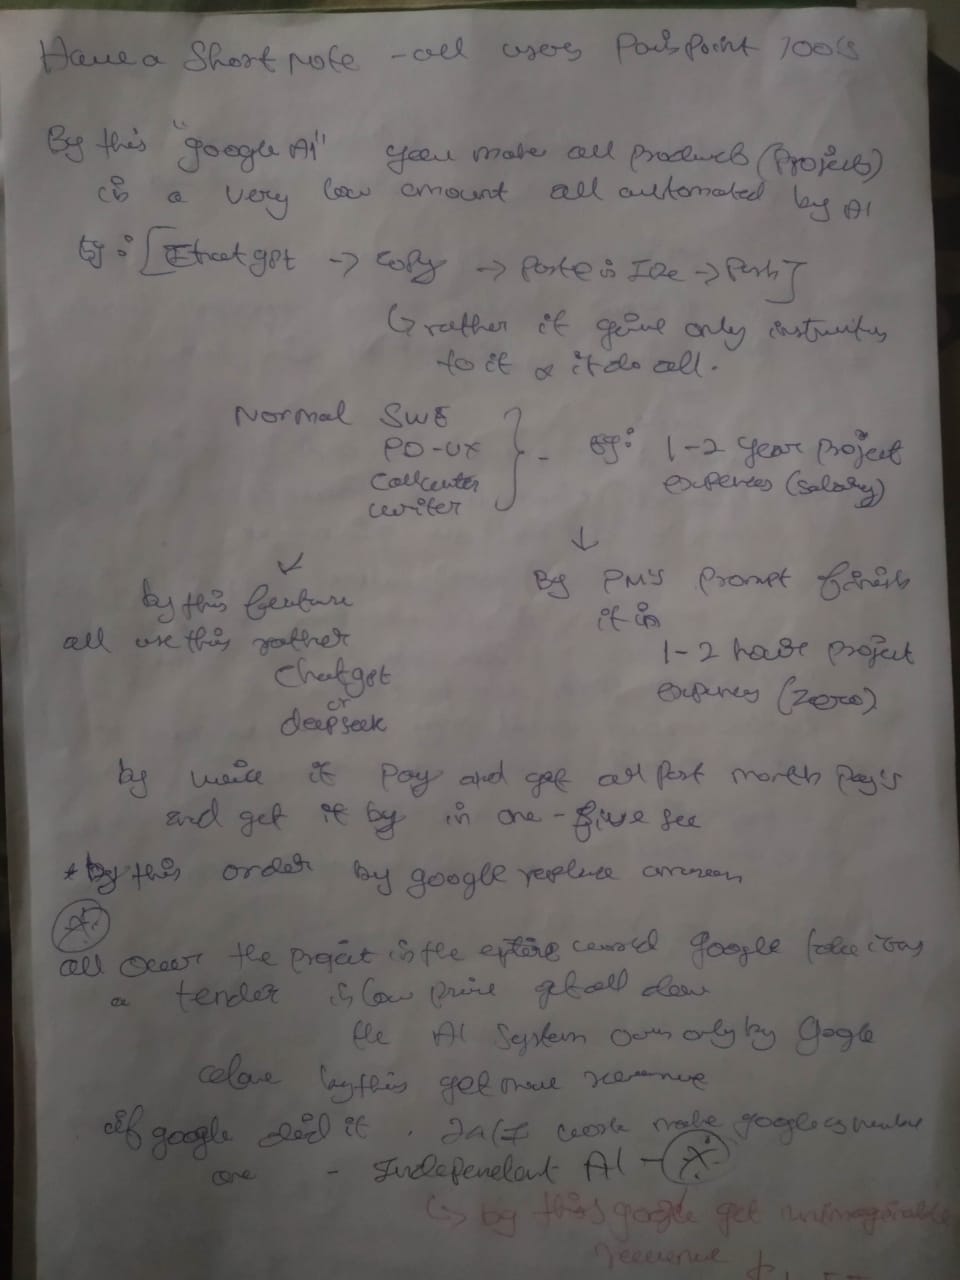 Have a Short note - all users Painpoint 100%
By this "google AI" you make all products (Projects)
in a very low amount all automated by AI
Eg: [ Chatgpt -> copy -> Paste in IDE -> Push ]
↳ rather it give only
to it & it do all.
Normal SWE
PD-UX
Callcenter
writer
- Eg: 1-2 year project
expenses (salary)
↓
↙
By PM's Prompt finish
it in
1-2 hour project
expenses (Zero)
by this feature
all use this rather
Chatgpt
or
deepseek
by it Pay and get all Past month Pay's
and get it by in one - 
* By this order by google replace
A.
all over the project in the entire world google
a tender in low price get all done
the AI System own only by Google
by this get more revenue
if google did it. work make google as number
one - Independent AI - A.
↳ by this google get unimaginable
revenue